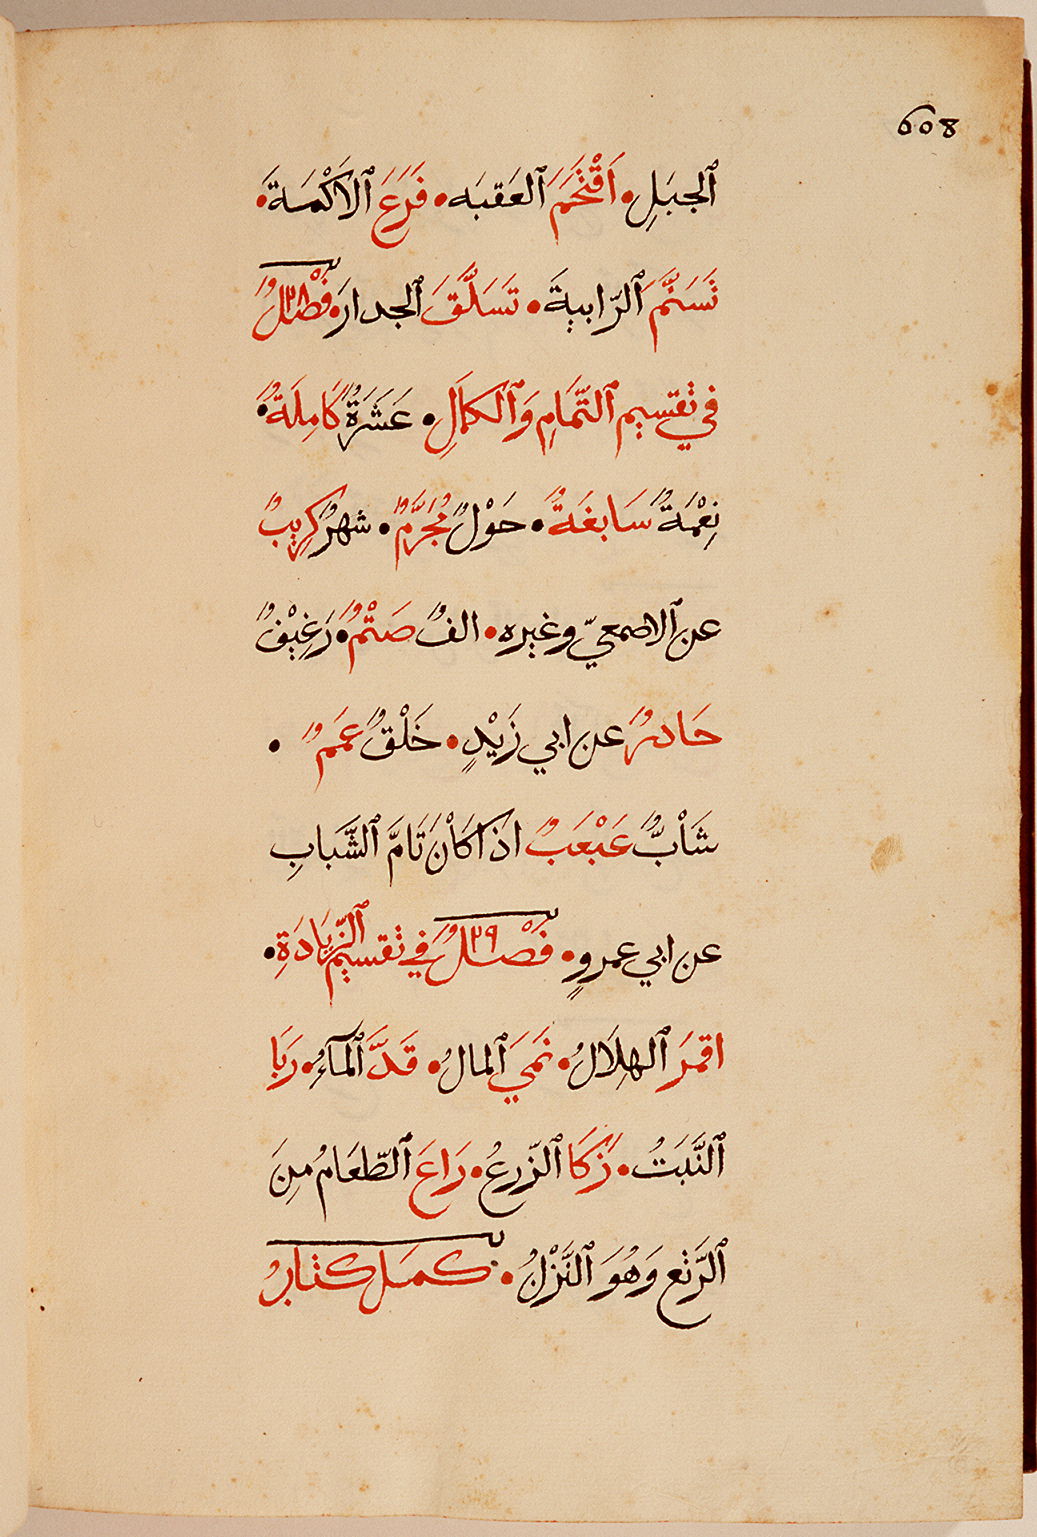 608
ٱلجبَلِ • اَقْتَحَمَ ٱلعَقبَه • فَرَعَ ٱلاَكْمَةَ •
تَسَنَّمَ ٱلرّابيةَ • تَسَلَّقَ ٱلجدارَ • فَصْلٌ ٣٨
في تقسيم ٱلتّمَامِ وَٱلكمَالِ • عَشَرَةٌ كَامِلَةٌ •
نِعْمَةٌ سَابغَةٌ • حَوْلٌ مُجَرَّمٌ • شهرٌ كرِيبٌ
عن ٱلاصمعيّ وغيره • الفٌ صَتْمٌ • رَغِيْفٌ
حَادرٌ عن ابي زَيْدٍ • خَلْقٌ عمَمٌ •
شَاْبٌّ عَبْعَبٌ اذَا كَاْنَ تَامَّ ٱلشَّبابِ
عن ابي عمروٍ • فَصْلٌ ٣٩ في تقسيم ٱلزّيَادَةِ •
اقمَرَ ٱلهِلَالُ • نَمَيَ ٱلمالُ • قَدَّ ٱلمآءُ • رَبَا
ٱلنَّبَتُ • زَكَا ٱلزّرعُ • رَاعَ ٱلطّعَامُ مِنَ
ٱلرَتع وَهُوَ ٱلنَّزْلُ • كمَل كتابُ